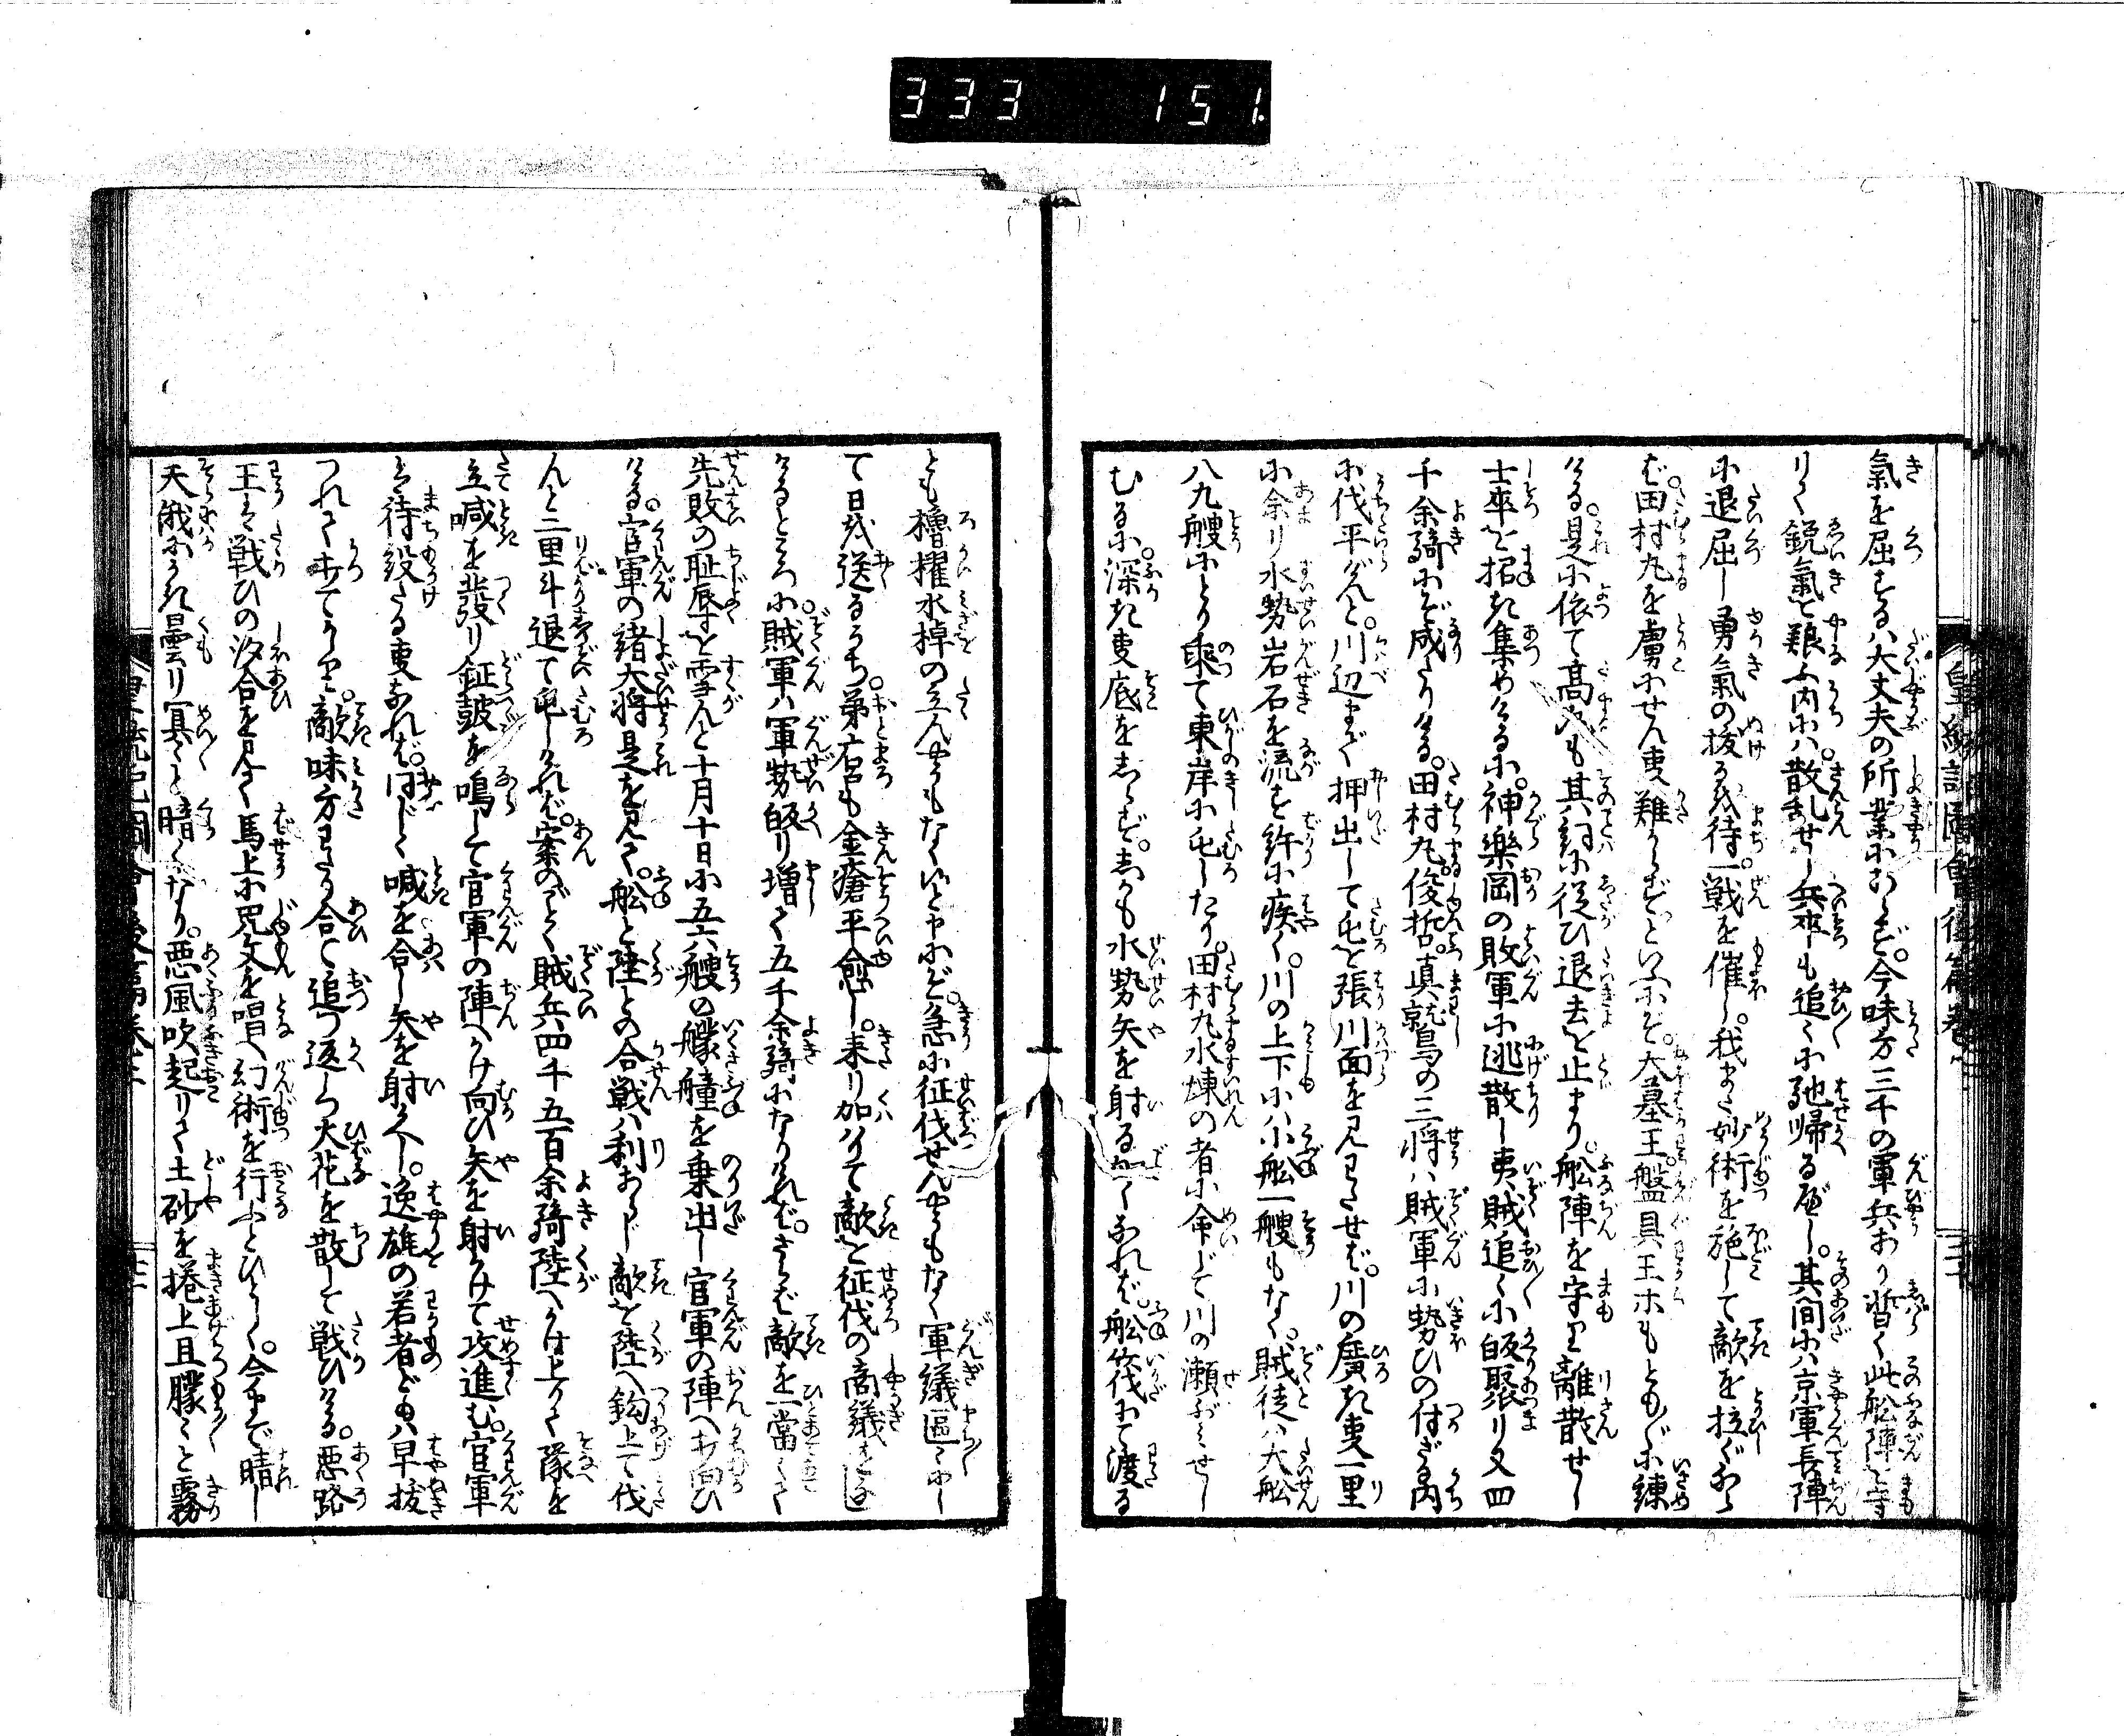 333 151.
皇統記圖會後篇卷
氣を屈するハ大丈夫の所業にあらず。今味方三千の軍兵あり暫く此舩陣を守
りて鋭氣を養ふ内にハ散乱せし兵卒も追〻に馳帰るべし。其間にハ京軍長陣
に退屈し勇氣の抜るを待一戦を催し。我また妙術を施して敵を拉ぐなら
ば田村丸を虜にせん吏難からずといふにぞ。大墓王。盤具王ホもとも〴〵に練
ける。是に依て高丸も其詞に従ひ退去を止まり。舩陣を守り離散せし
士卒を招き集めけるに。神樂岡の敗軍に逃散し夷賊追〻に皈聚り又四
千余騎にぞ成たりける。田村丸俊哲。真鷲の三将ハ賊軍に勢ひの付ざる内
に伐平げんと。川辺まで押出して屯を張川面を見わたせば。川の廣き吏一里
に余り水勢岩石を流す許に疾く。川の上下にハ小舩一艘もなく。賊徒ハ大舩
八九艘にとり乗て東岸に屯したり。田村丸水煉の者に命じて川の瀬ぶミせし
むるに。深き吏底をしらず。しかも水勢矢を射る如くなれば。舩筏にて渡る
とも櫓櫂水棹の立んやうもなくいと申にぞ。急に征伐せんやうもなく軍議區〻にし
て日を送るうち。弟宕も金瘡平愈し。来り加はりて敵を征伐の商議を
なるところに。賊軍ハ軍勢皈り増て五千余騎になりければ。さらば敵を一當して
先敗の耻辱を雪んと十月十日に五六艘の艨艟を乗出し官軍の陣へおし向ひ
ける。官軍の諸大将是を見て。舩と陸との合戦ハ利あらじ敵を陸へ鈎上て伐
んと二里斗退て屯しければ。案のごとく賊兵四千五百余騎陸へかけ上りて隊を
立喊を發り鉦皷を鳴して官軍の陣へかけ向ひ矢を射かけて攻進む。官軍
も待設たる吏なれば。同じく喊を合し矢を射かへし。逸雄の若者どもハ早抜
つれて赴てかゝり。敵味方わたり合て追つ返しつ火花を散して戦ひける。悪路
王ハ戦ひの汐合を見て馬上に咒文を唱へ幻術を行ふとひとしく。今まで晴し
天俄にかき曇り冥〻と暗くなり。悪風吹起りて土砂を捲上且朦〻と霧